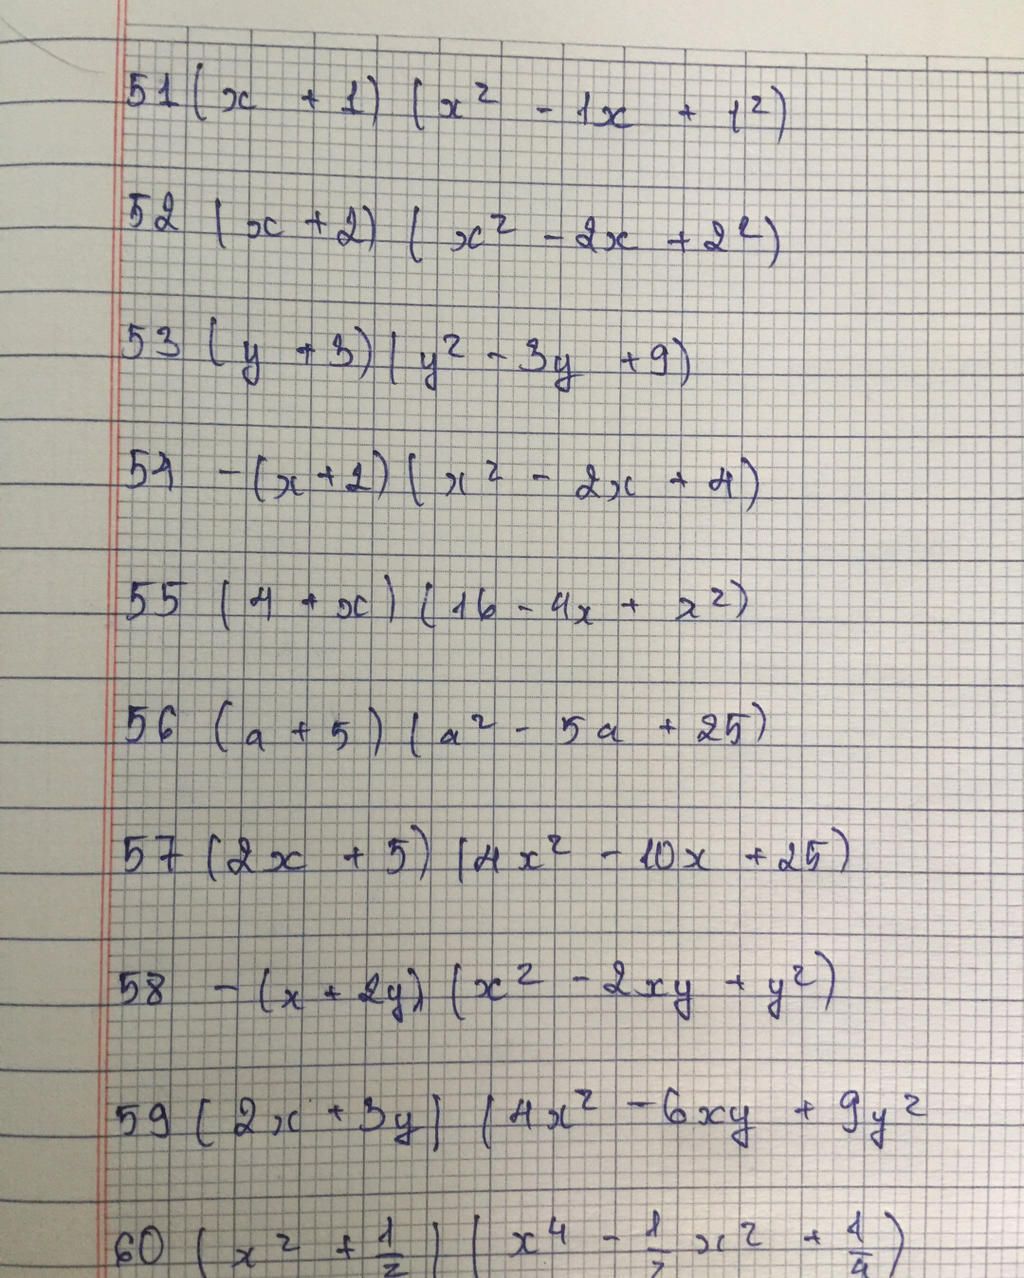 51 (x + 1) (x² - 1x + 1²)
52 (x + 2) (x² - 2x + 2²)
53 (y + 3) (y² - 3y + 9)
54 -(x + 2) (x² - 2x + 4)
55 (4 + x) (16 - 4x + x²)
56 (a + 5) (a² - 5a + 25)
57 (2x + 5) (4x² - 10x + 25)
58 -(x + 2y) (x² - 2xy + y²)
59 (2x + 3y) (4x² - 6xy + 9y²
60 (x² + 1/2) (x⁴ - 1/2 x² + 1/4)